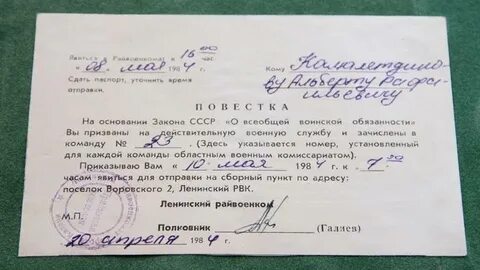 Явиться в Райвоенкомат к 16 00 час
« 08 » мая 1984 г.
Сдать паспорт, уточнить время
отправки.
Кому Камалетдино-
ву Альберту Рафа-
ильевичу
ПОВЕСТКА
На основании Закона СССР «О всеобщей воинской обязанности»
Вы призваны на действительную военную службу и зачислены в
команду № 23. (Здесь указывается номер, установленный
для каждой команды областным военным комиссариатом).
Приказываю Вам « 10 » мая 1984 г. к 7 00
часам явиться для отправки на сборный пункт по адресу:
поселок Воровского 2, Ленинский РВК.
Ленинский райвоенком
М.П.
Полковник (Галиев)
20 апреля 1984 г.